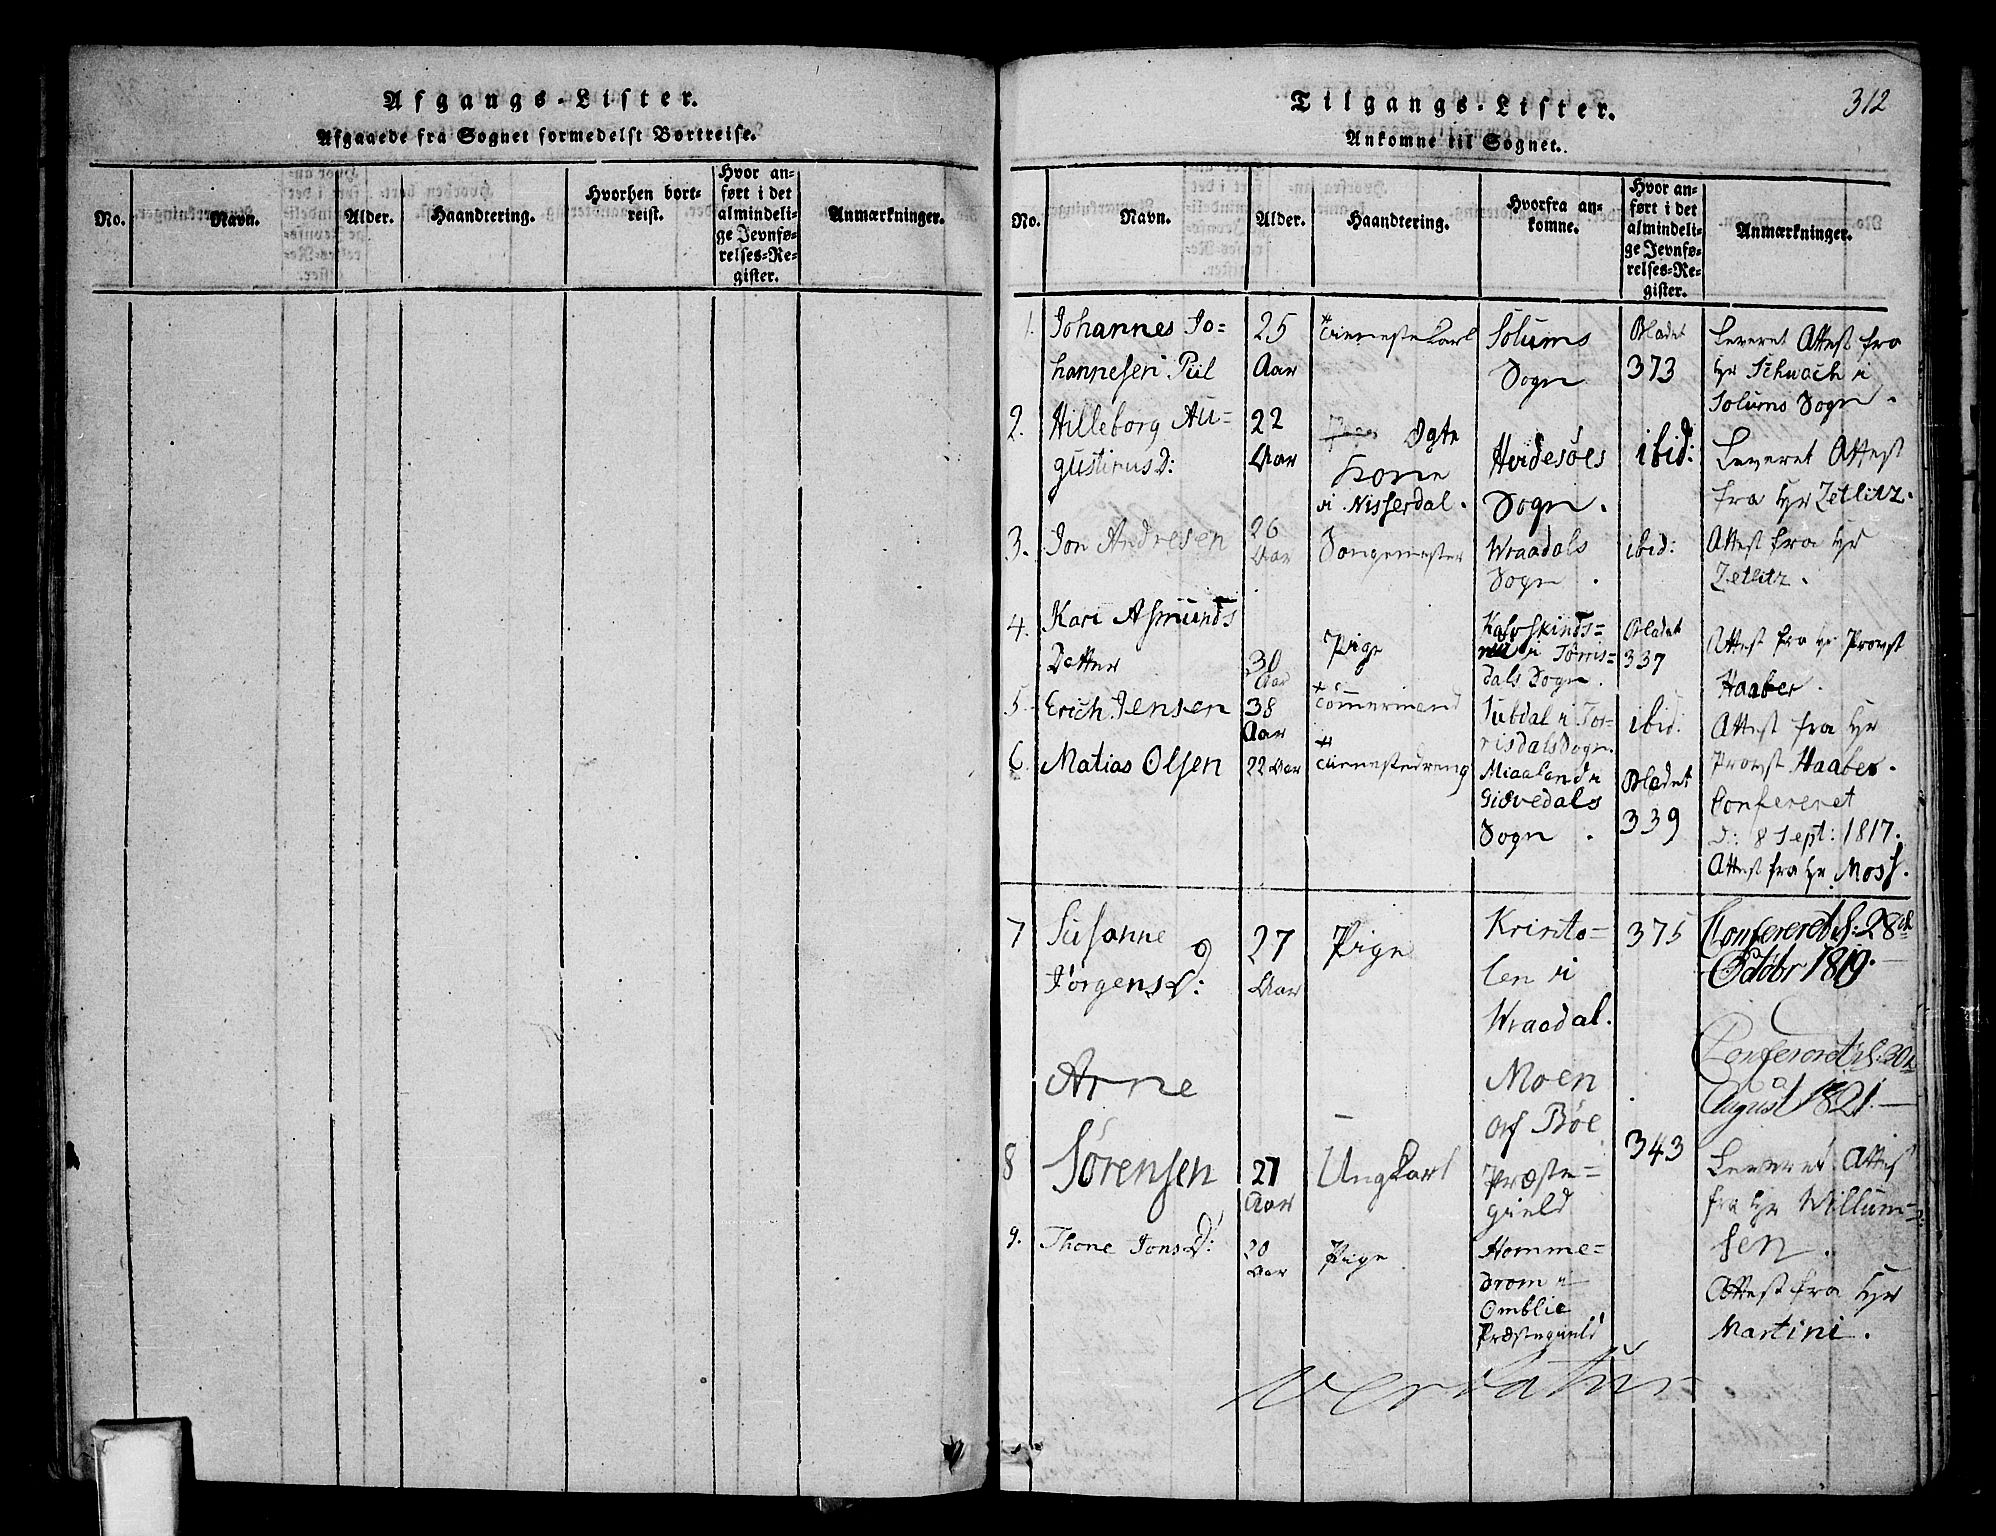 Afgangs-Lister.
Afgaaede fra Sognet formedelst Bortreise.
No.
Navn.
Alder.
Haandtering.
Hvorhen bort-
reist.
Hvor an-
ført i det
almindeli-
ge Jevnfø-
relses-Re-
gister.
Anmærkninger.
312
Tilgangs-Lister.
Ankomne til Sognet.
No.
Navn.
Alder.
Haandtering.
Hvorfra an-
komne.
Hvor an-
ført i det
almindeli-
ge Jevnfø-
relses-Re-
gister.
Anmærkninger.
1. Johannes Jo=
hannesen Piil
25
Aar
Tienestekarl
Solums
Sogn
Bladet
373
Leveret Attest fra
Hr Schwach i
Solums Sogn.
2. Hilleborg Au=
gustinusD:
22
Aar
Ægte
Kone
i Nisserdal.
Hvidesøes
Sogn.
ibid:
Leveret Attest
fra Hr Zetlitz.
3. Jon Andresen
26
Aar
Sangemester
Wraadals
Sogn.
ibid:
Attest fra Hr
Zetlitz.
4. Kari Asmunds
Datter
30
Aar
Pige
Kalvskinds=
i Tørris=
dals Sogn.
Bladet
337
Attest fra Hr Provst
Haaber.
5. Erich Jensen
38
Aar
Tømmermand
Jubdal i Tør-
risdals Sogn.
ibid.
Attest fra Hr
Provst Haaber.
6. Matias Olsen
22 Aar
Tienestedreng
Miaaland i
Giovedals
Sogn.
Bladet
339
Confereret
D: 8 Sept: 1817.
Attest fra Hr. Moss.
7
Susanne
JørgensD:
27
Aar
Pige
Krinto=
len i
Wraadal.
375
Confereret d: 28de
Octobr 1819.
Confereret d: 30te
August 1821.
8
Arne
Sørensen
27
Aar
Ungkarl
Moen
af Bøe
Præste=
gield
343
Leveret Attest
fra Hr Willum=
sen.
9. Thone JonsD:
20
Aar
Pige
Homme=
drom i
Omblie
Præstegield
Attest fra Hr
Martini.
Vertatur